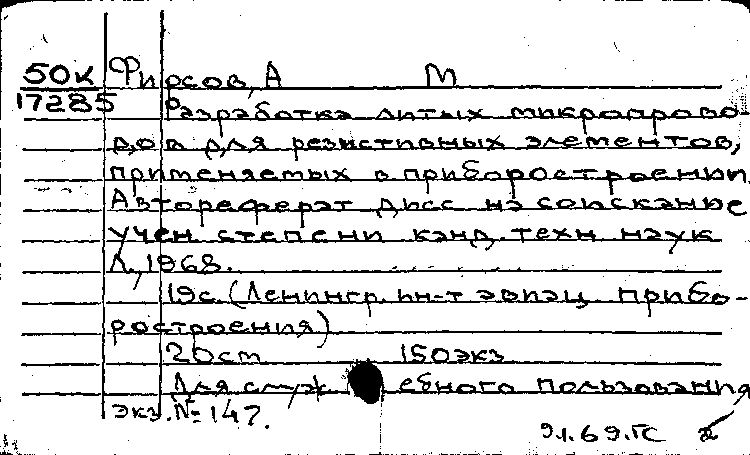 50к Фирсов, А М
17285 Разработка литых микропрово-
дов для резистивных элементов,
применяемых в приборостроении.
Автореферат дисс на соискание
учен степени канд. техн наук
Л., 1968.
19с. (Ленингр. ин-т авиац. прибо-
ростроения)
20см 150экз
Для служебного пользования
экз. № 147.
9.1.69.